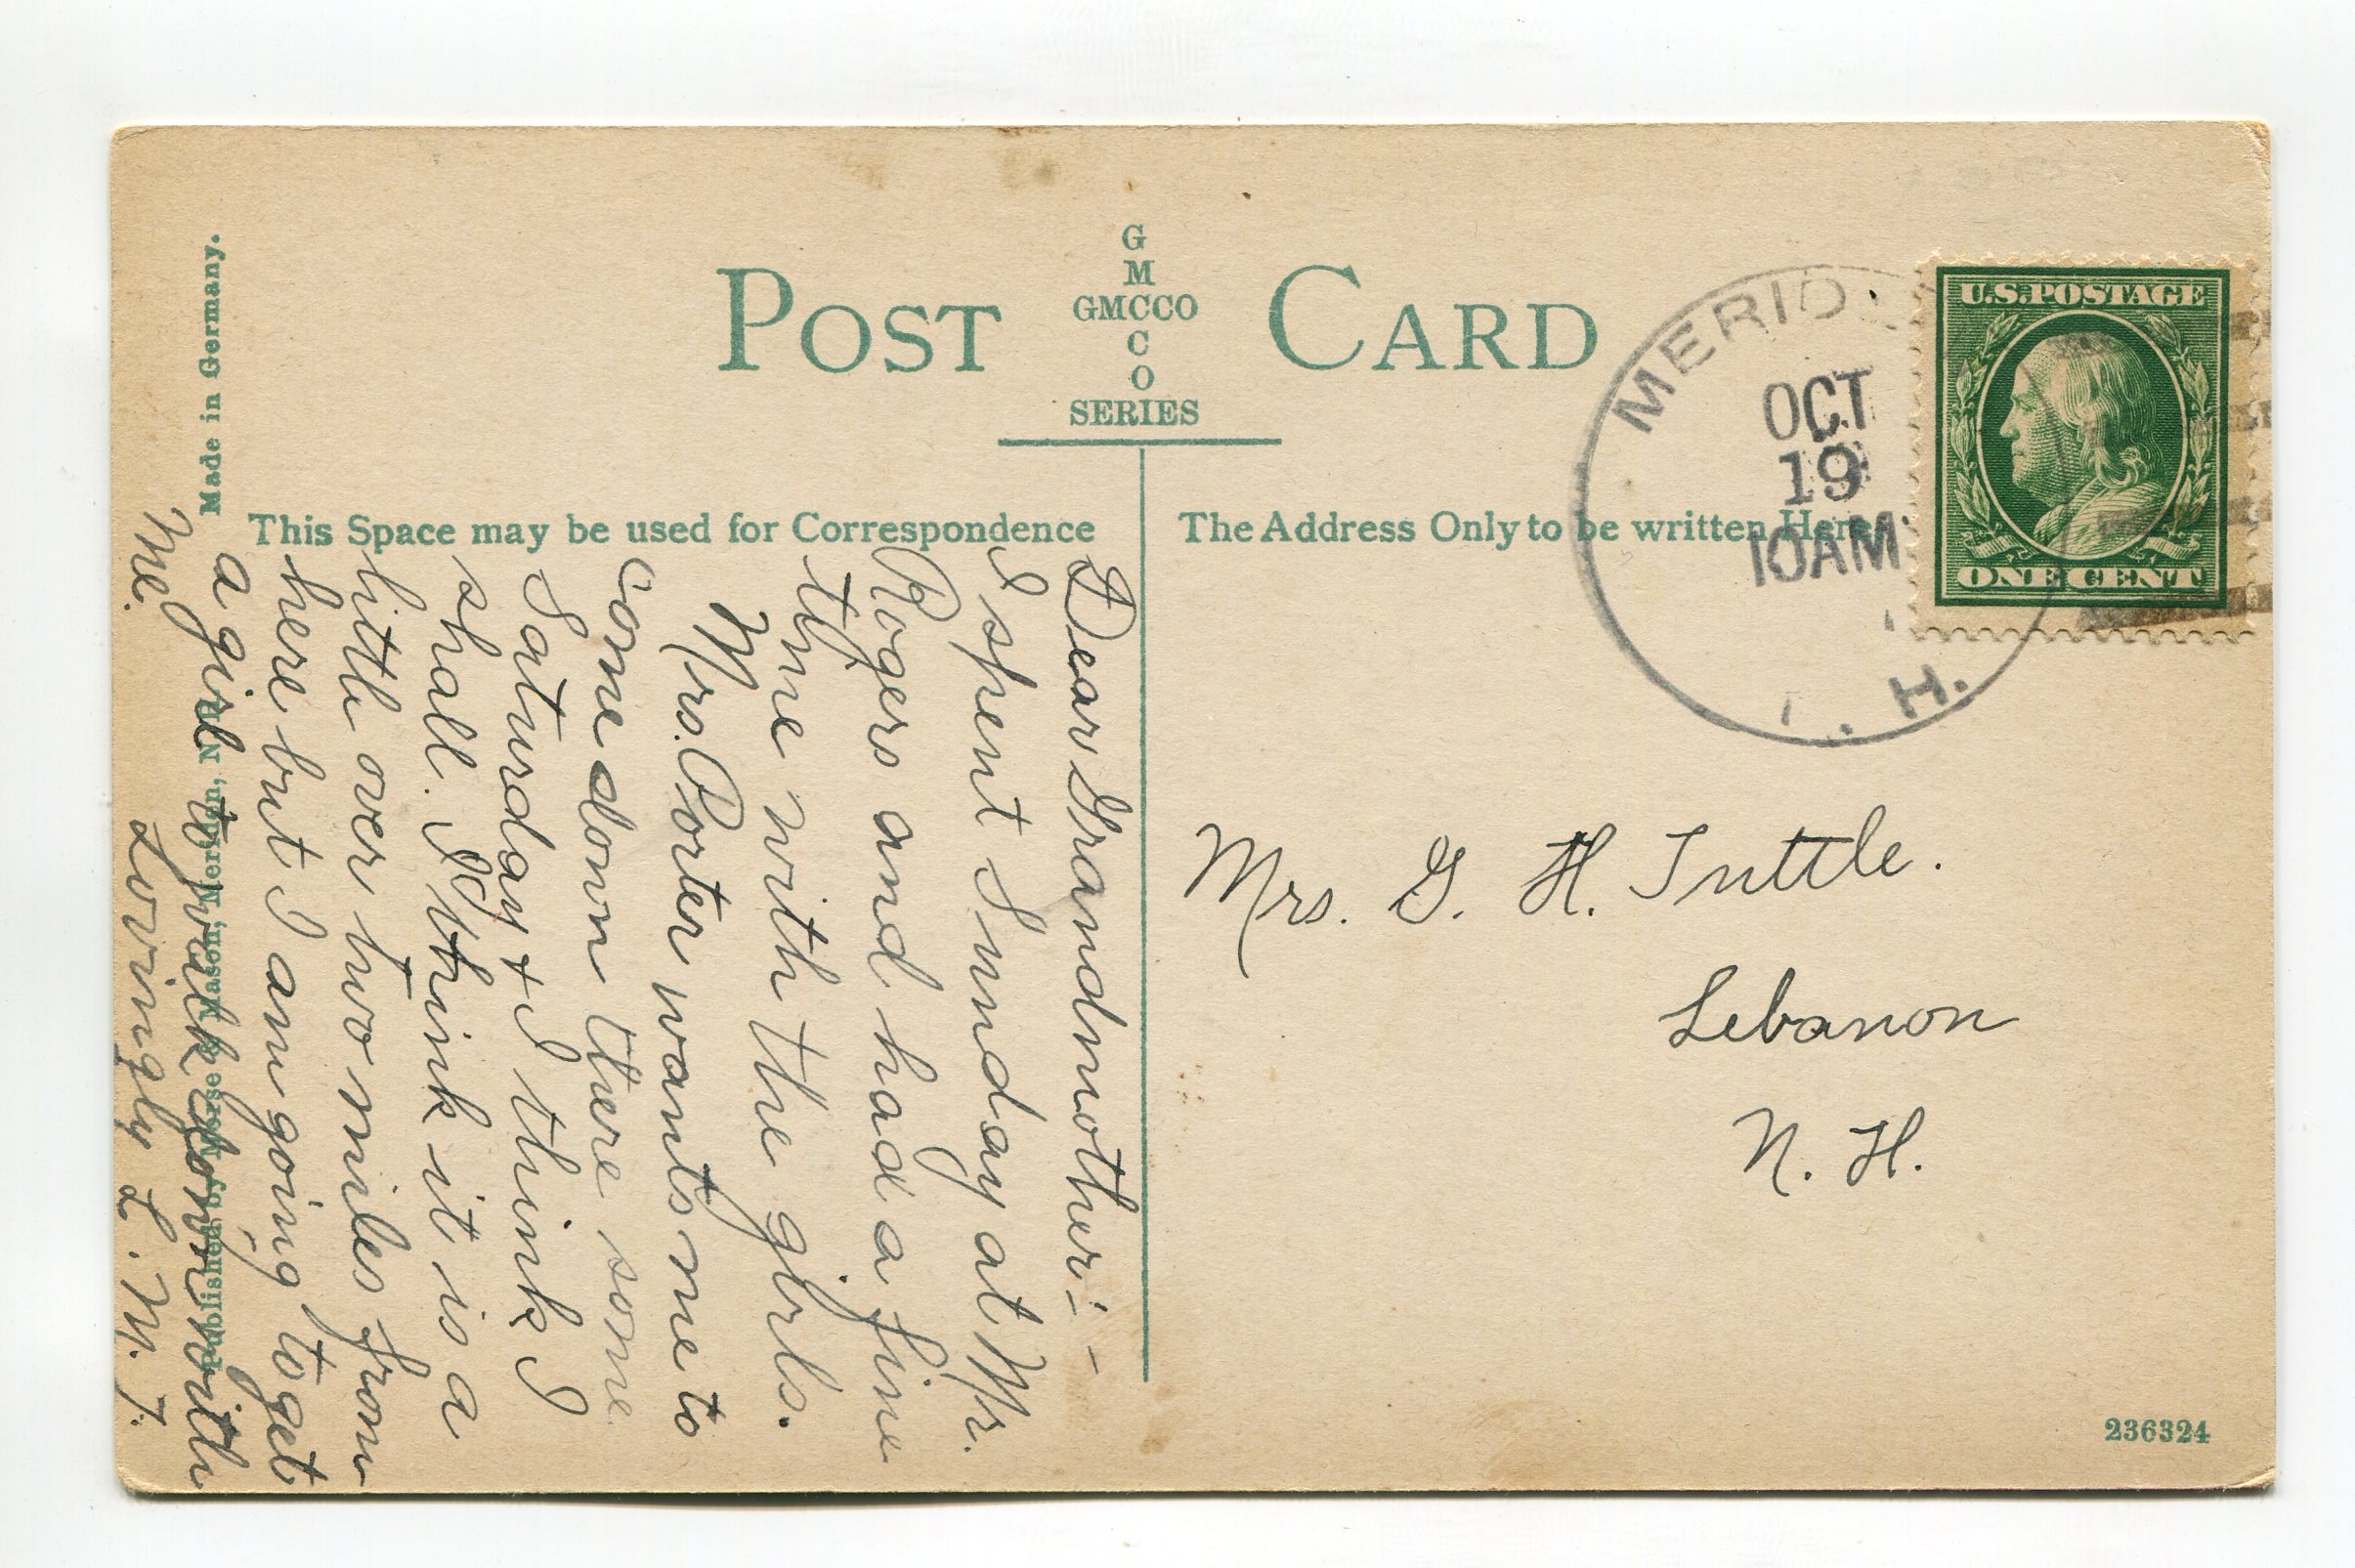 POST CARD
G
M
GMCCO
C
O
SERIES
This Space may be used for Correspondence
The Address Only to be written Here
MERID
OCT
19
10AM
. H.
U.S. POSTAGE
ONE CENT
Dear Grandmother:-
I spent Sunday at Mr.
Rogers and had a fine
time with the girls.
Mrs. Porter wants me to
come down there some
Saturday + I think I
shall. I think it is a
little over two miles from
here but I am going to get
a girl to walk down with
me.
Lovingly L. M. T.
Mrs. G. H. Tuttle.
Lebanon
N. H.
Made in Germany.
Published by Morse Mason, Meriden, N.
236324